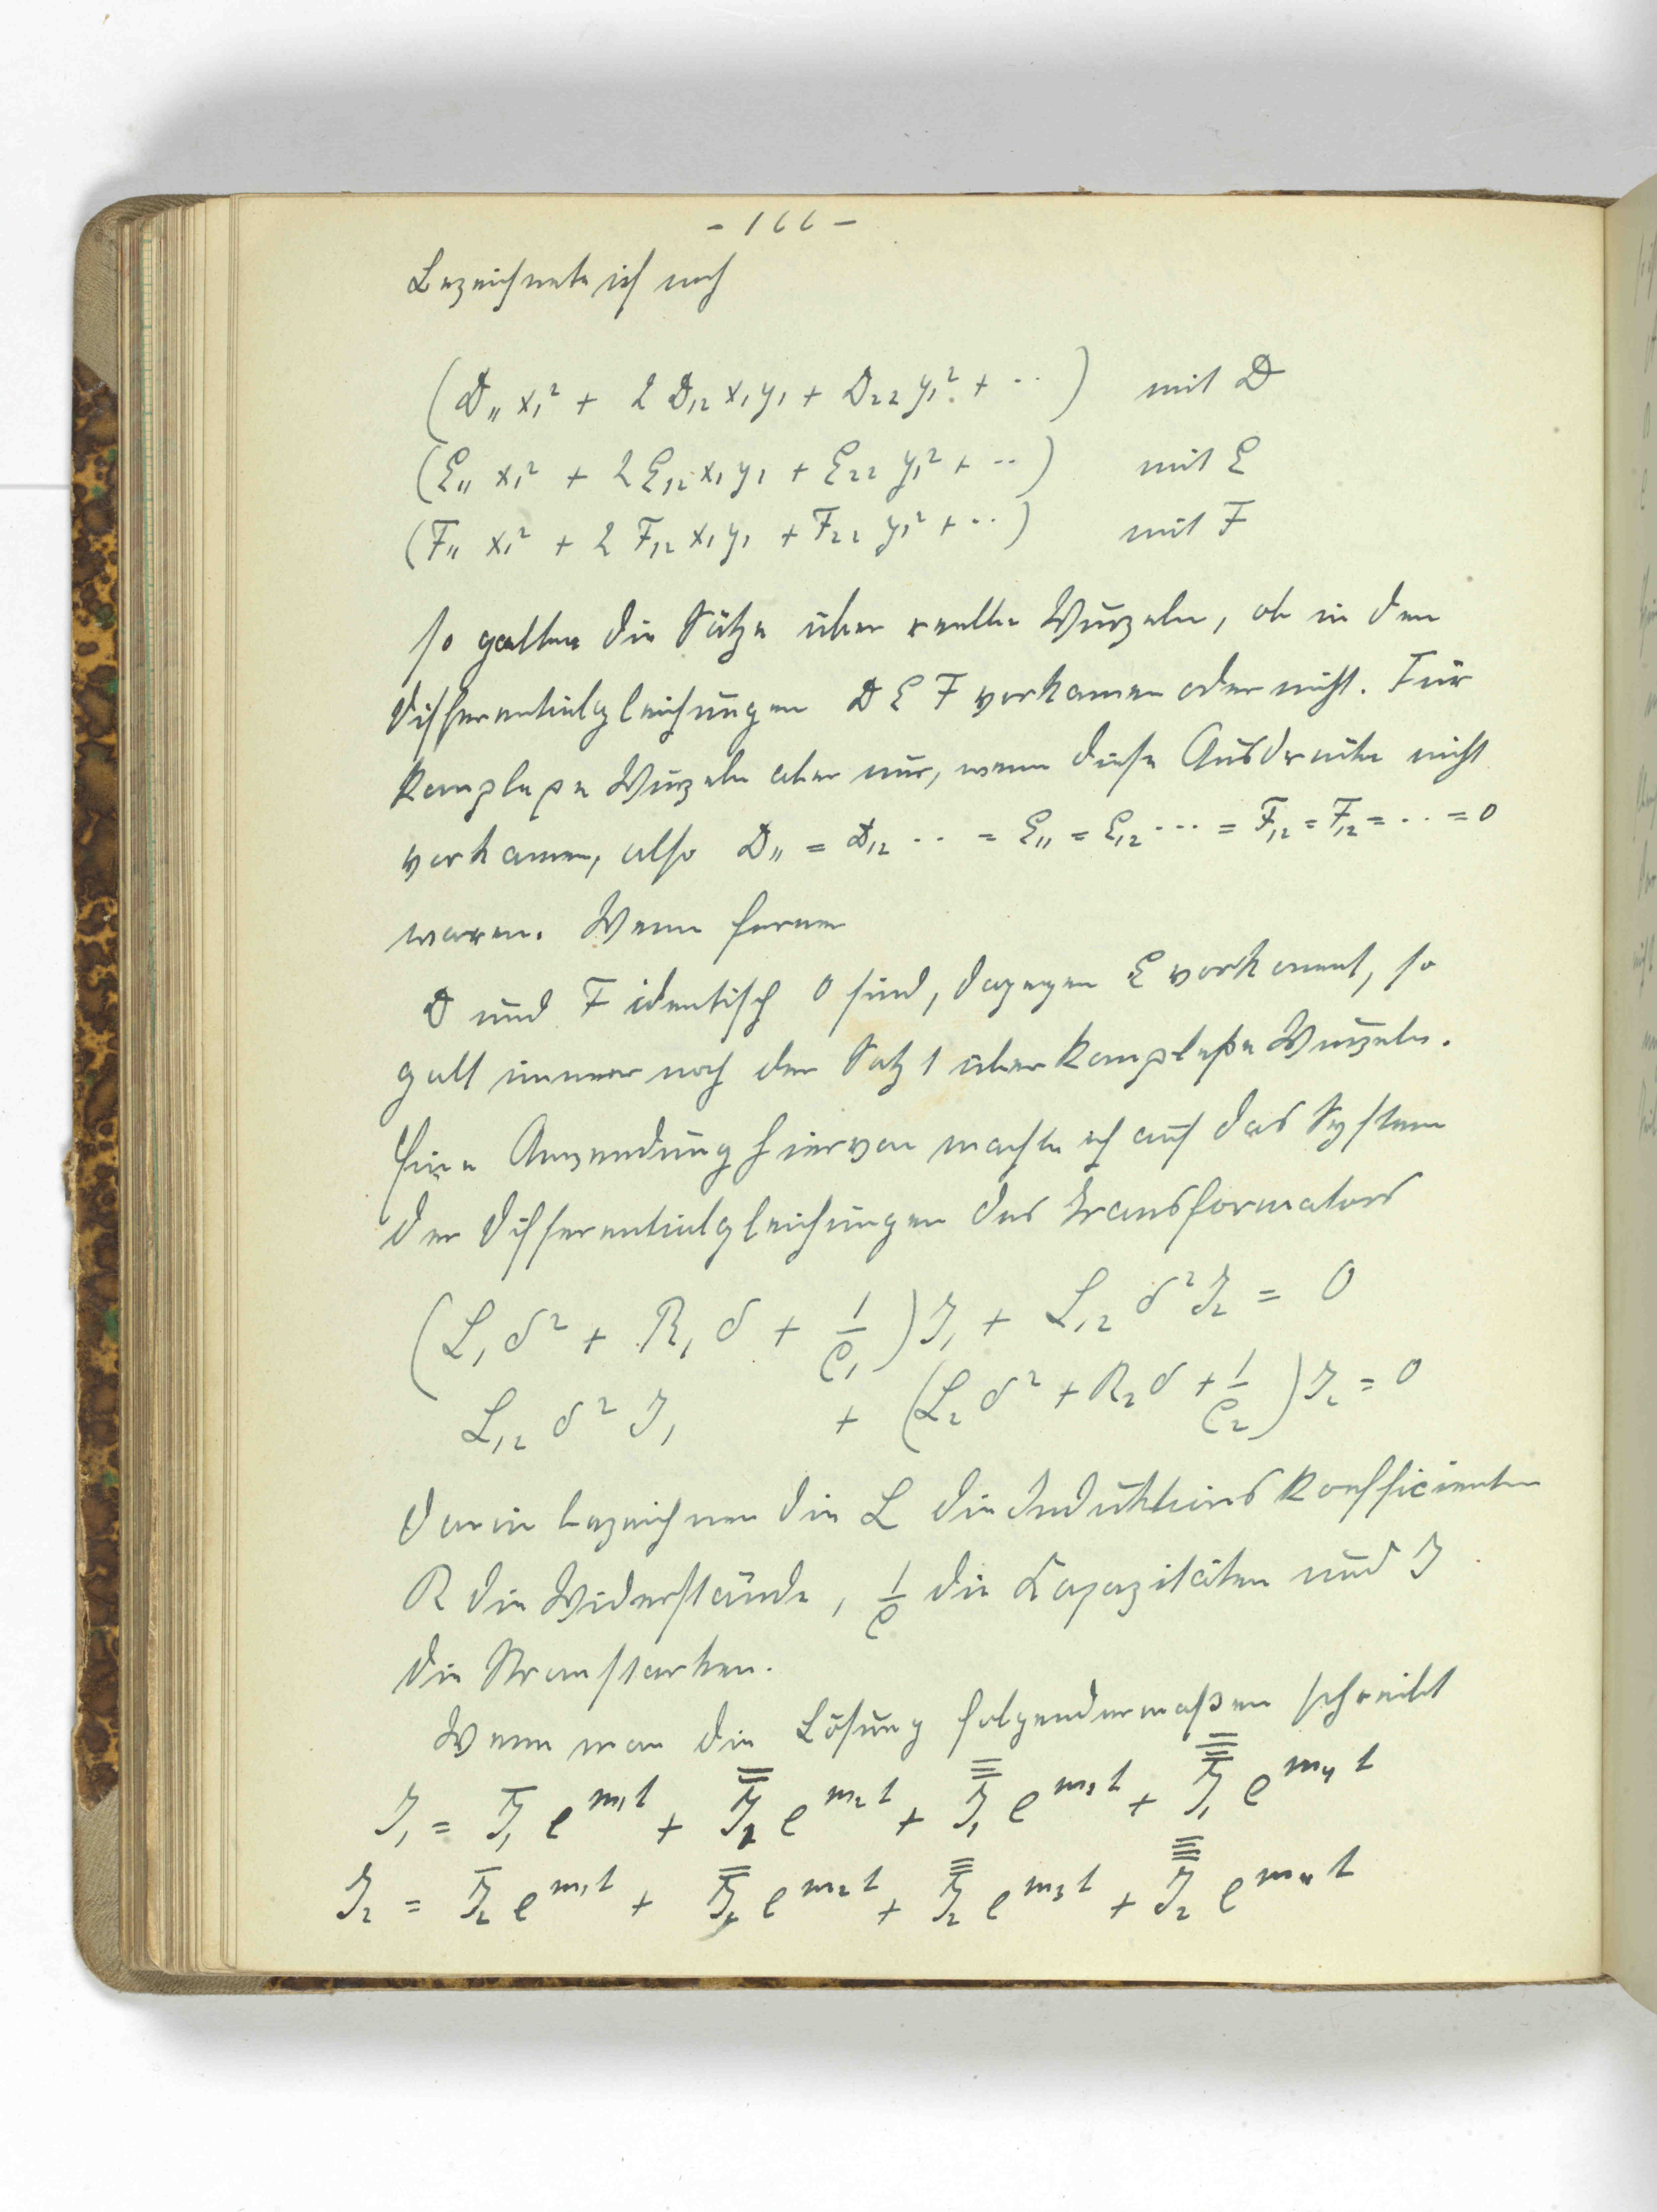 - 166 -
Bezeichnete ich noch
(D₁₁ x₁² + 2 D₁₂ x₁ y₁ + D₂₂ y₁² + ··) mit D
(E₁₁ x₁² + 2 E₁₂ x₁ y₁ + E₂₂ y₁² + ··) mit E
(F₁₁ x₁² + 2 F₁₂ x₁ y₁ + F₂₂ y₁² + ··) mit F
so galten die Sätze über reelle Wurzeln, ob in den
Differentialgleichungen D E F vorkamen oder nicht. Für
komplexe Wurzeln aber nur, wenn diese Ausdrücke nicht
vorkamen, also D₁₁ = D₁₂ ·· = E₁₁ = E₁₂ ··· = F₁₂ = F₁₂ = ··· = 0
waren. Wenn ferner
D und F identisch 0 sind, dagegen E vorkommt, so
galt immer noch der Satz 1 über komplexe Wurzeln.
Eine Anwendung hiervon machte ich auf das System
der Differentialgleichungen des Transformators
(L₁ δ² + R₁ δ + 1/C₁) J₁ + L₁₂ δ² J₂ = 0
L₁₂ δ² J₁ + (L₂ δ² + R₂ δ + 1/C₂) J₂ = 0
Darin bezeichnen die L die Induktionskoefficienten
R die Widerstände, 1/C die Kapazitäten und J
die Stromstärken.
Wenn man die Lösung folgendermaßen schreibt
J₁ = J̅₁ e^{m₁t} + J̿₁ e^{m₂t} + J̿̅₁ e^{m₃t} + J̿̿₁ e^{m₄t}
J₂ = J̅₂ e^{m₁t} + J̿₂ e^{m₂t} + J̿̅₂ e^{m₃t} + J̿̿₂ e^{m₄t}